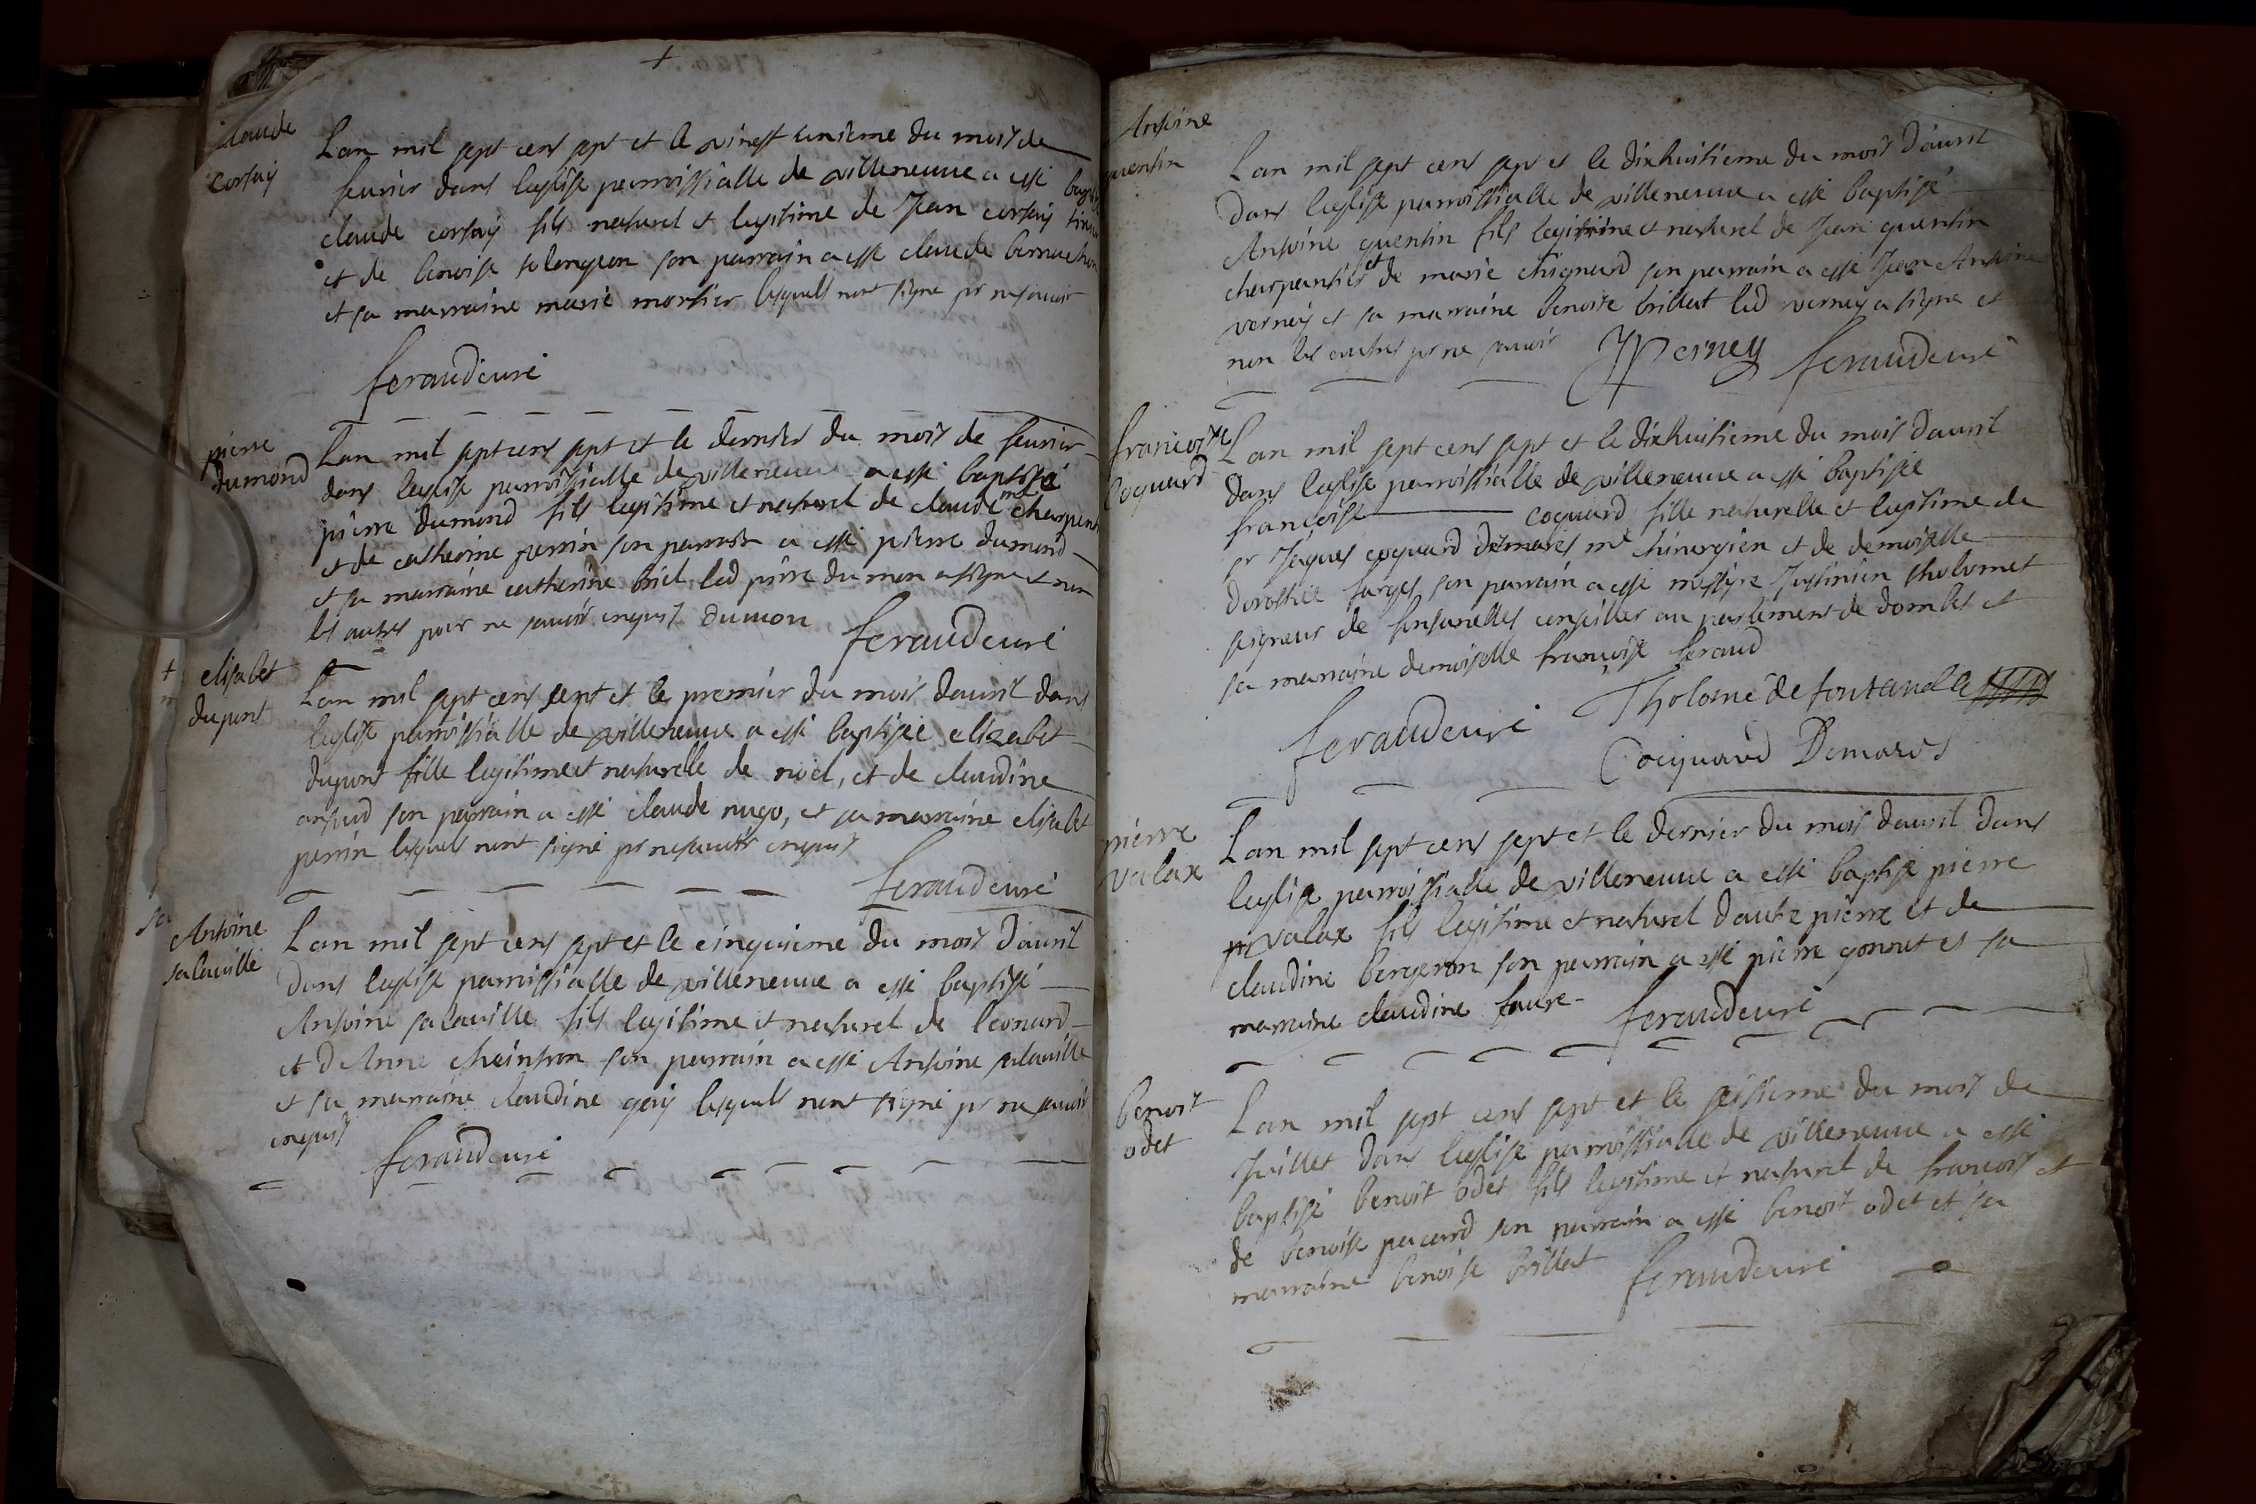 claude
corsay
Lan mil sept cens sept et le vingt unieme du mois de
feurier dans leglise parroissialle de villeneuue a esté
claude corsay fils naturel et legitime de Jean corsay
et de benoise solongeon son parrain a esté claude bernachon
et sa marraine marie mortier lesquels nont signe pr ne scauoir
feraud curé
pierre
dumond
Lan mil sept cens sept et le dernier du mois de feurier
dans leglise parroissialle de villeneuue a esté baptisé
pierre dumond fils legitime et naturel de claude me charpent
et de catherine perrin son parrain a esté pierre dumond
et sa marraine catherine led pierre dumon a signe et non
les autres pour ne scauoir enquis dumon
feraud curé
elisabet
dupont
Lan mil sept cens sept et le premier du mois dauril dans
leglise parroissialle de villeneuue a esté baptisée elizabet
dupont fille legitime et naturelle de noel, et de claudine
son parrain a esté claude nugo, et sa marraine elisabet
perrin lesquels nont signé pr ne scauoir enquis
feraud curé
Antoine
salauille
Lan mil sept cens sept et le cinquieme du mois dauril
dans leglise parroissialle de villeneuue a esté baptisé
Antoine salauille fils legitime et naturel de leonard
et dAnne son parrain a esté Antoine salauille
et sa marraine claudine gay lesquels nont signé pr ne scauoir
enquis
feraud curé
Antoine
quentin
Lan mil sept cens sept et le dixhuitieme du mois dauril
dans leglise parroissialle de villeneuue a esté baptisé
Antoine quentin fils legitime et naturel de Jean quentin
charpentier et de marie chignard son parrain a esté Jean Antoine
verney et sa marraine benoite brillat led verney a signe et
non les autres pr ne scauoir
JVerney feraud curé
francoise
Coquard
Lan mil sept cens sept et le dixhuitieme du mois dauril
dans leglise parroissialle de villeneuue a esté baptisée
françoise coquard fille naturelle et legitime de
sr Jaques coquard demares me chirurgien et de demoiselle
dorothée farges son parrain a esté messire Justinien tholomet
seigneur de fontanelles conseiller au parlement de dombes et
sa marraine demoiselle françoise feraud
feraud curé Tholomé de fontanelle
Cocquard Demares
pierre
valax
Lan mil sept cens sept et le dernier du mois dauril dans
leglise parroissialle de villeneuue a esté baptisé pierre
valax fils legitime et naturel dautre pierre et de
claudine bergeron son parrain a esté pierre gonnet et sa
marraine claudine faure
feraud curé
benoit
odet
Lan mil sept cens sept et le sistieme du mois de
Juillet dans leglise parroissialle de villeneuue a esté
baptisé benoit odet fils legitime et naturel de francois et
de benoise pacard son parrain a esté benoit odet et sa
marraine benoise brillat
feraud curé